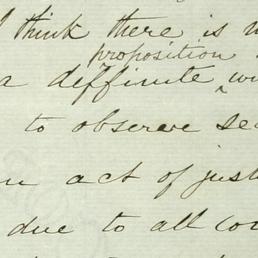 I think there is
proposition
a deffinite
to observe se
act of just
due to all con